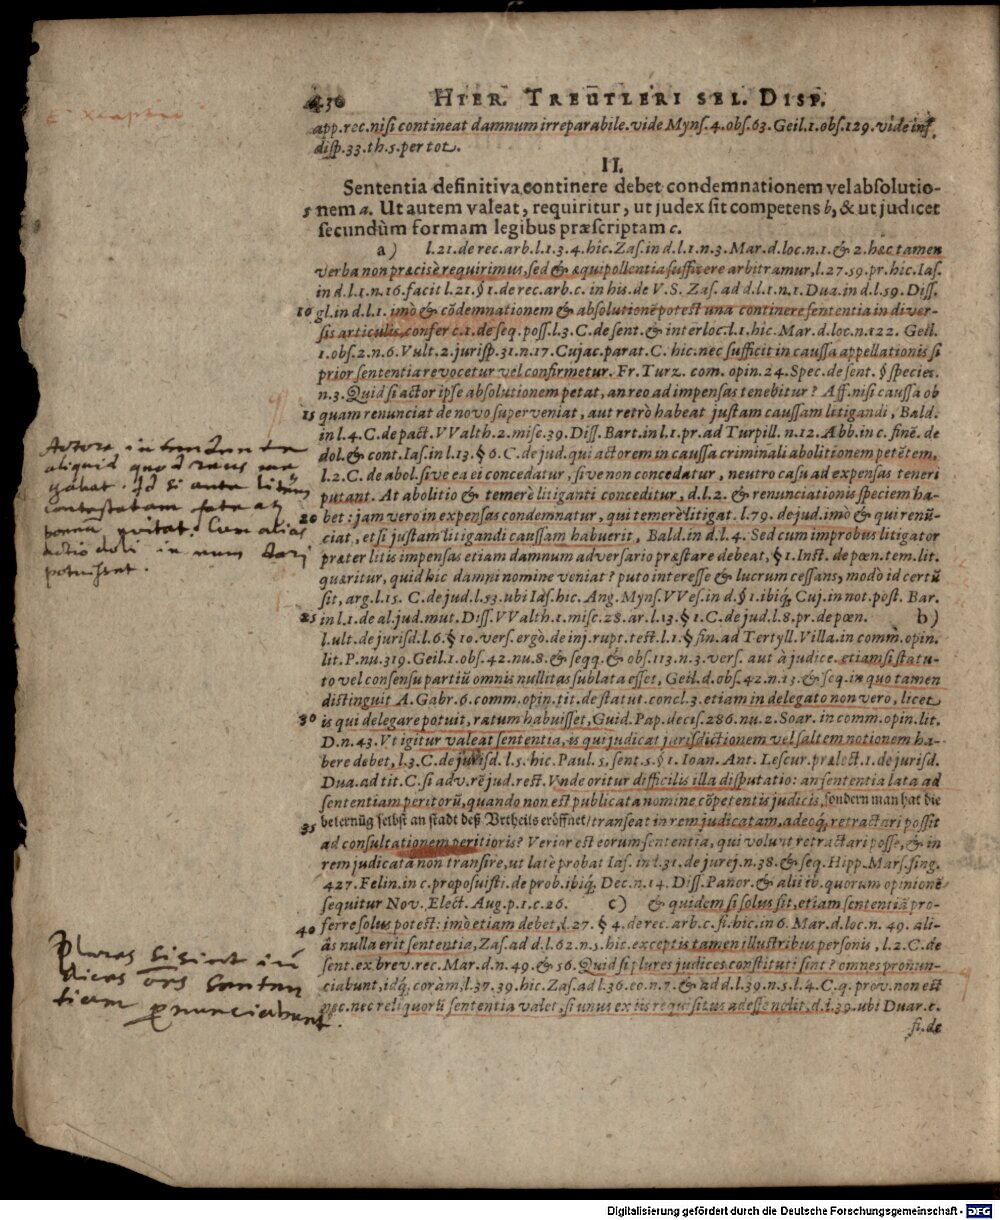 430 HIER. TREUTLERI SEL. DISP.
app. rec. nisi contineat damnum irreparabile. vide Myns. 4. obs. 63. Geil. 1. obs. 129. vide inf.
disp. 33. th. 5. per tot.
II.
Sententia definitiva continere debet condemnationem vel absolutio-
5 nem a. Ut autem valeat, requiritur, ut judex sit competens b, & ut judicet
secundùm formam legibus præscriptam c.
a) l. 21. de rec. arb. l. 1. 3. 4. hic. Zas. in d. l. 1. n. 3. Mar. d. loc. n. 1. & 2. hæc tamen
verba non præcisè requirimus, sed & æquipollentia sufficere arbitramur, l. 27. 59. pr. hic. Ias.
in d. l. 1. n. 16. facit l. 21. § 1. de rec. arb. c. in his. de V. S. Zas. ad d. l. 1. n. 1. Dua. in d. l. 59. Diss.
10 gl. in d. l. 1. imò & cōdemnationem & absolutionē potest una continere sententia in diver-
sis articulis, confer c. 1. de seq. poss. l. 3. C. de sent. & interloc. l. 1. hic. Mar. d. loc. n. 122. Geil.
1. obs. 2. n. 6. Vult. 2. jurisp. 31. n. 17. Cujac. parat. C. hic. nec sufficit in caussa appellationis si
prior sententia revocetur vel confirmetur. Fr. Turz. com. opin. 24. Spec. de sent. § species.
n. 3. Quid si actor ipse absolutionem petat, an reo ad impensas tenebitur? Aff. nisi caussa ob
15 quam renunciat de novo superveniat, aut retrò habeat justam caussam litigandi, Bald.
in l. 4. C. de pact. VValth. 2. misc. 39. Diss. Bart. in l. 1. pr. ad Turpill. n. 12. Abb. in c. finē. de
dol. & cont. Ias. in l. 13. § 6. C. de jud. qui actorem in caussa criminali abolitionem petētem,
l. 2. C. de abol. sive ea ei concedatur, sive non concedatur, neutro casu ad expensas teneri
putant. At abolitio & temerè litiganti conceditur, d. l. 2. & renunciationis speciem ha-
20 bet: jam vero in expensas condemnatur, qui temerè litigat. l. 79. de jud. imò & qui renū-
ciat, etsi justam litigandi caussam habuerit, Bald. in d. l. 4. Sed cum improbus litigator
præter litis impensas etiam damnum adversario præstare debeat, § 1. Inst. de pœn. tem. lit.
quæritur, quid hic damni nomine veniat? puto interesse & lucrum cessans, modò id certū
sit, arg. l. 15. C. de jud. l. 53. ubi Ias. hic. Ang. Myns. VVes. in d. § 1. ibiq; Cuj. in not. post. Bar.
25 in l. 1. de al. jud. mut. Diss. VValth. 1. misc. 28. ar. l. 13. § 1. C. de jud. l. 8. pr. de pœn. b)
l. ult. de jurisd. l. 6. § 10. vers. ergò. de inj. rupt. test. l. 1. § fin. ad Tertyll. Villa. in comm. opin.
lit. P. nu. 319. Geil. 1. obs. 42. nu. 8. & seqq. & obs. 113. n. 3. vers. aut à judice. etiamsi statu-
to vel consensu partiū omnis nullitas sublata esset, Geil. d. obs. 42. n. 13. & seq. in quo tamen
distinguit A. Gabr. 6. comm. opin. tit. de statut. concl. 3. etiam in delegato non vero, licet
30 is qui delegare potuit, ratum habuisset, Guid. Pap. decis. 286. nu. 2. Soar. in comm. opin. lit.
D. n. 43. Vt igitur valeat sententia, is qui judicat jurisdictionem vel saltem notionem ha-
bere debet, l. 3. C. de jurisd. l. 5. hic. Paul. 5. sent. 5. § 1. Ioan. Ant. Lescur. prælect. 1. de jurisd.
Dua. ad tit. C. si adv. rē jud. rest. Vnde oritur difficilis illa disputatio: an sententia lata ad
sententiam peritorū, quando non est publicata nomine cōpetentis judicis, sondern man hat die
35 belernūg selbst an stadt deß Vrtheils eröffnet / transeat in rem judicatam, adeoq; retractari possit
ad consultationem peritioris? Verior est eorum sententia, qui volunt retractari posse, & in
rem judicatā non transire, ut latè probat Ias. in l. 31. de jurej. n. 38. & seq. Hipp. Mars. sing.
427. Felin. in c. proposuisti. de prob. ibiq; Dec. n. 14. Diss. Panor. & alii iv. quorum opinionē
sequitur Nov. Elect. Aug. p. 1. c. 26. c) & quidem si solus sit, etiam sententiā pro-
40 ferre solus potest: imò etiam debet, l. 27. § 4. de rec. arb. c. fi. hic. in 6. Mar. d. loc. n. 49. ali-
às nulla erit sententia, Zas. ad d. l. 62. n. 5. hic. exceptis tamen illustribus personis, l. 2. C. de
sent. ex brev. rec. Mar. d. n. 49. & 56. Quid si plures judices constituti sint? omnes pronun-
ciabunt, idq; coràm, l. 37. 39. hic. Zas. ad l. 36. eo. n. 7. & ad d. l. 39. n. 5. l. 4. C. q. prov. non est
nec. nec reliquorū sententia valet, si unus ex iis requisitus adesse nolit, d. l. 39. ubi Duar. c.
fi. de
Actore intendente
aliquid quod reus ne
gabat. Id si ante litem
contestatam
Cum alias
actio doli in eum dari
potuisset.
Plures si sint iu
dices oēs senten
tiam pronunciabunt.
Digitalisierung gefördert durch die Deutsche Forschungsgemeinschaft - DFG